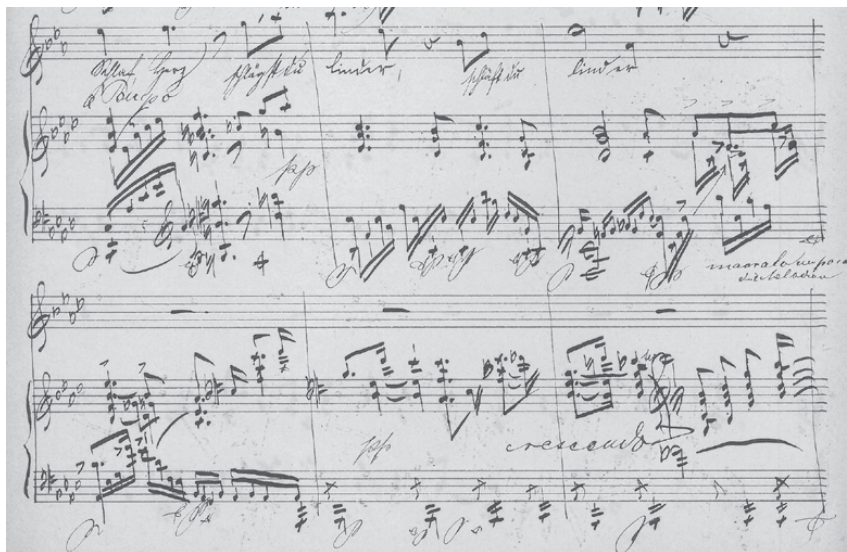 Herz schlägst du linder, linder
a Tempo
pp
marcato un poco
die Melodien
pp crescendo